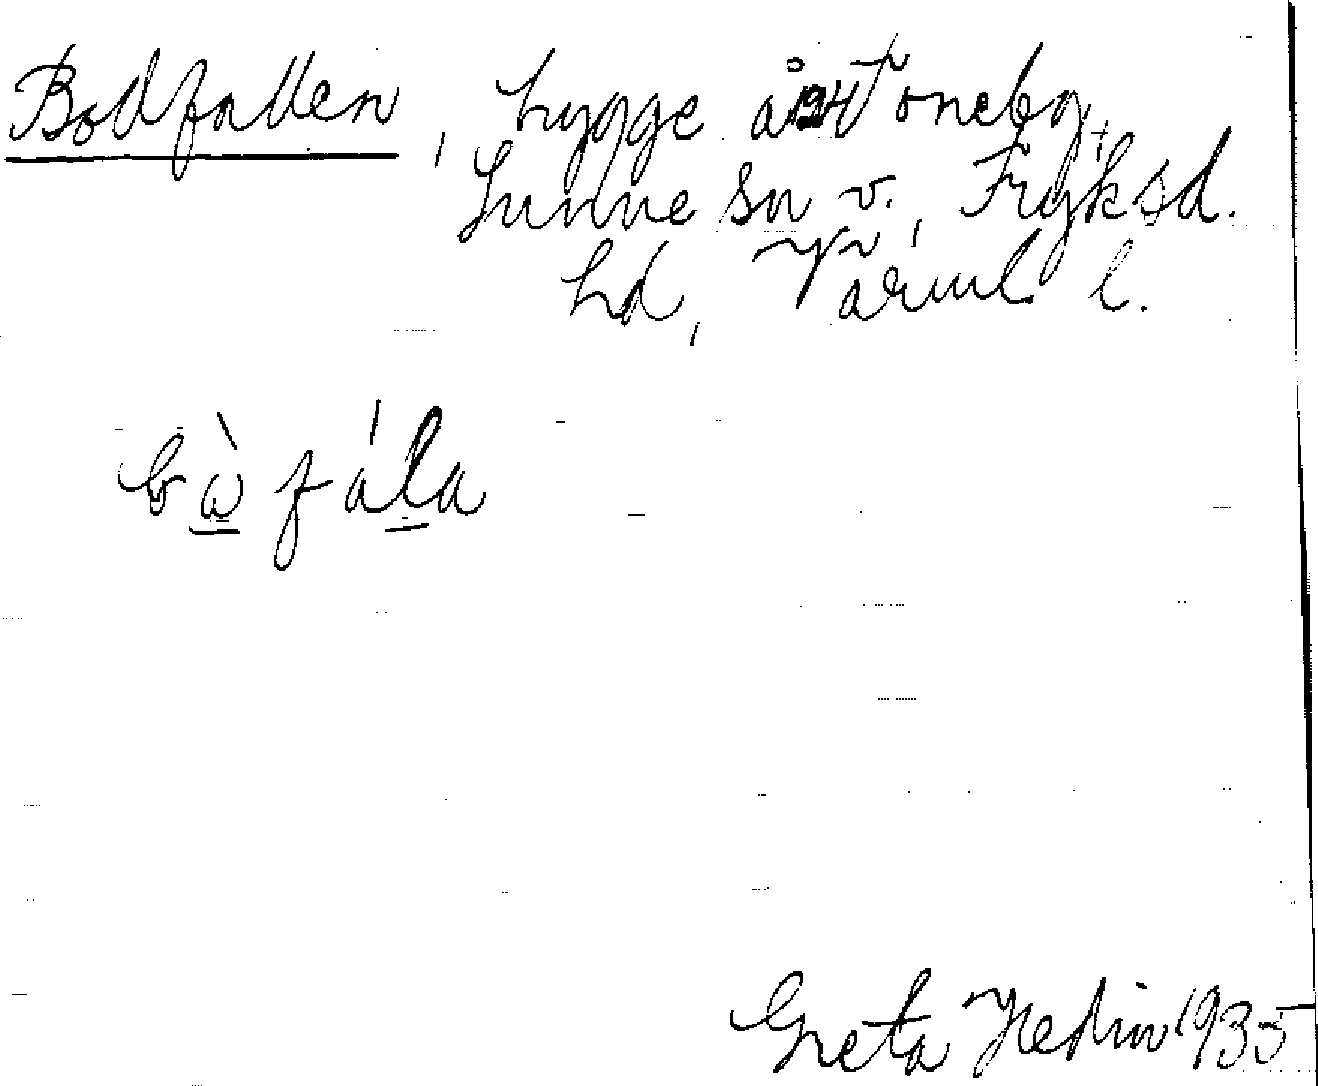 Bodfallen, bygge å Toneby,
Sunne sn v., Fryksd.
hd, Värml l.
bàfála
Greta Hedin 1935